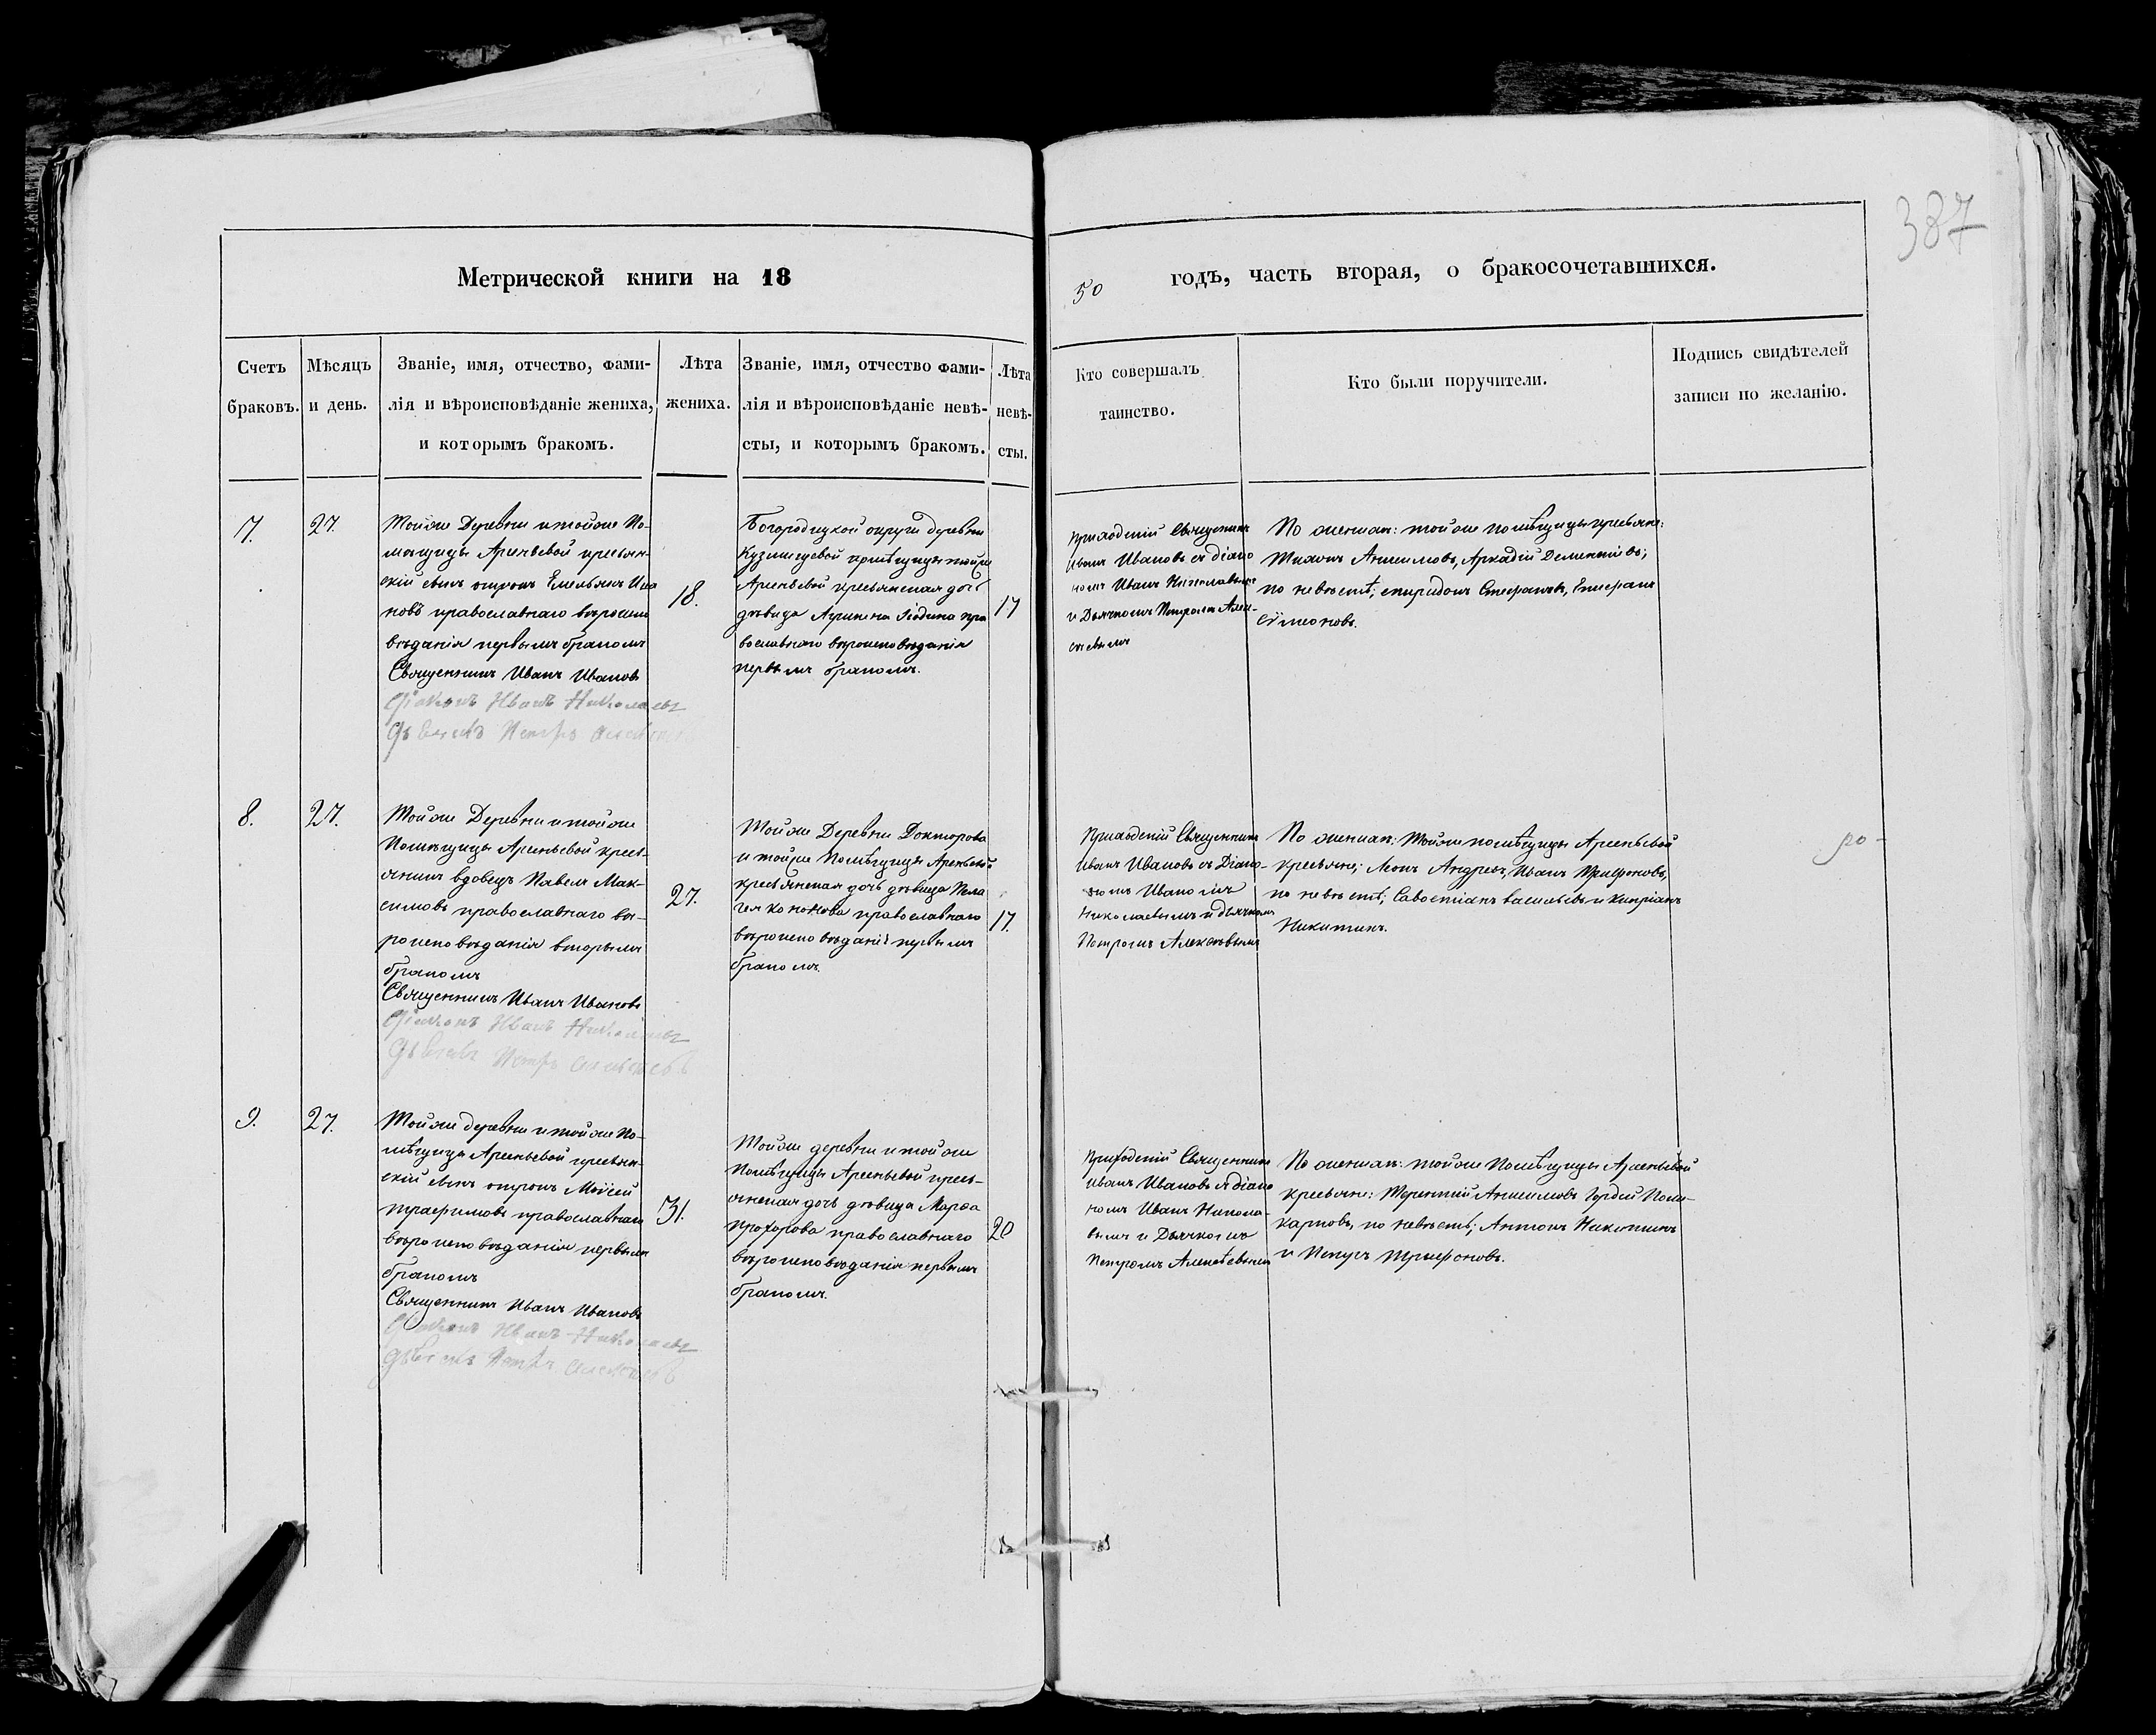 387
Метрической книги на 18
50 годъ, часть вторая, о бракосочетавшихся.
Счетъ браковъ.
Мѣсяцъ и день.
Званіе, имя, отчество, фами-
лія и вѣроисповѣданіе жениха,
и которымъ бракомъ.
Лѣта жениха.
Званіе, имя, отчество фами-
лія и вѣроисповѣданіе невѣ-
сты, и которымъ бракомъ.
Лѣта невѣ-
сты.
Кто совершалъ
таинство.
Кто были поручители.
Подпись свидѣтелей
записи по желанію.
7.
27.
Тойже Деревни и тойже По-
мѣщицы Арсеньевой крестьян-
скій сынъ отрокъ Емельянъ Ива
новъ православнаго вѣроиспо
вѣданія первымъ бракомъ
Священникъ Иванъ Ивановъ
Діаконъ Иванъ Николаевъ
Дьячекъ Петръ Алексѣевъ
18.
Богородицкой округи деревни
помѣщицы тойже
Арсеньевой крестьянская дочь
дѣвица Агрипена пра
вославнаго вѣроисповѣданія
первымъ бракомъ.
17
Приходскій Священникъ
Иванъ Ивановъ съ діако
номъ Иванъ Николаевымъ
и Дьячкомъ Петромъ Алек-
сѣевымъ
По женихѣ: тойже помѣщицы крестьяне:
Тихонъ Анисимовъ, Аркадій Дементіевъ;
по невѣстѣ; спиридонъ Стефановъ, Стефанъ
Сѵмеоновъ.
8.
27.
Тойже Деревни и тойже
Помѣщицы Арсеньевой крестъ-
янинъ вдовецъ Павелъ Мак-
симовъ православнаго вѣ-
роисповѣданія вторымъ
бракомъ
Священникъ Иванъ Ивановъ
Діаконъ Иванъ Николаевъ
Дьячекъ Петръ Алексѣевъ
27.
Тойже Деревни Докторова
и тойже Помѣщицы Арсеньевой
крестьянская дочь дѣвица Пела
гея кононова православнаго
вѣроисповѣданія первымъ
бракомъ.
17.
Приходскій Священникъ
Иванъ Ивановъ съ Діако-
номъ Иваномъ
Николаевымъ и дьячкомъ
Петромъ Алексѣевымъ
По женихѣ: Тойже помѣщицы Арсеньевой
крестьяне; Андреевъ, Иванъ Трифоновъ,
по невѣстѣ; Савостіанъ васильевъ и Кипріанъ
Никитинъ.
9.
27.
Тойже деревни и тойже По-
мѣщицы Арсеньевой крестьян-
скій сынъ отрокъ Моѵсей
трафимовъ православнаго
вѣроисповѣданія первымъ
бракомъ
Священникъ Иванъ Ивановъ
Діаконъ Иванъ Николаевъ
Дьячекъ Петръ Алексѣевъ
31.
Тойже деревни и тойже
Помѣщицы Арсеньевой кресть-
янская дочь дѣвица Марѳа
прохорова православнаго
вѣроисповѣданія первымъ
бракомъ.
20
Приходскій Священникъ
Иванъ Ивановъ съ діако
номъ Иванъ Никола-
вымъ и Дьячкомъ
Петромъ Алексѣевымъ
По женихѣ: тойже Помѣщицы Арсеньевой
крестьяне: Терентій Анисимовъ Гордей Поли-
карповъ, по невѣстѣ; Антонъ Никитинъ
и Трифоновъ.